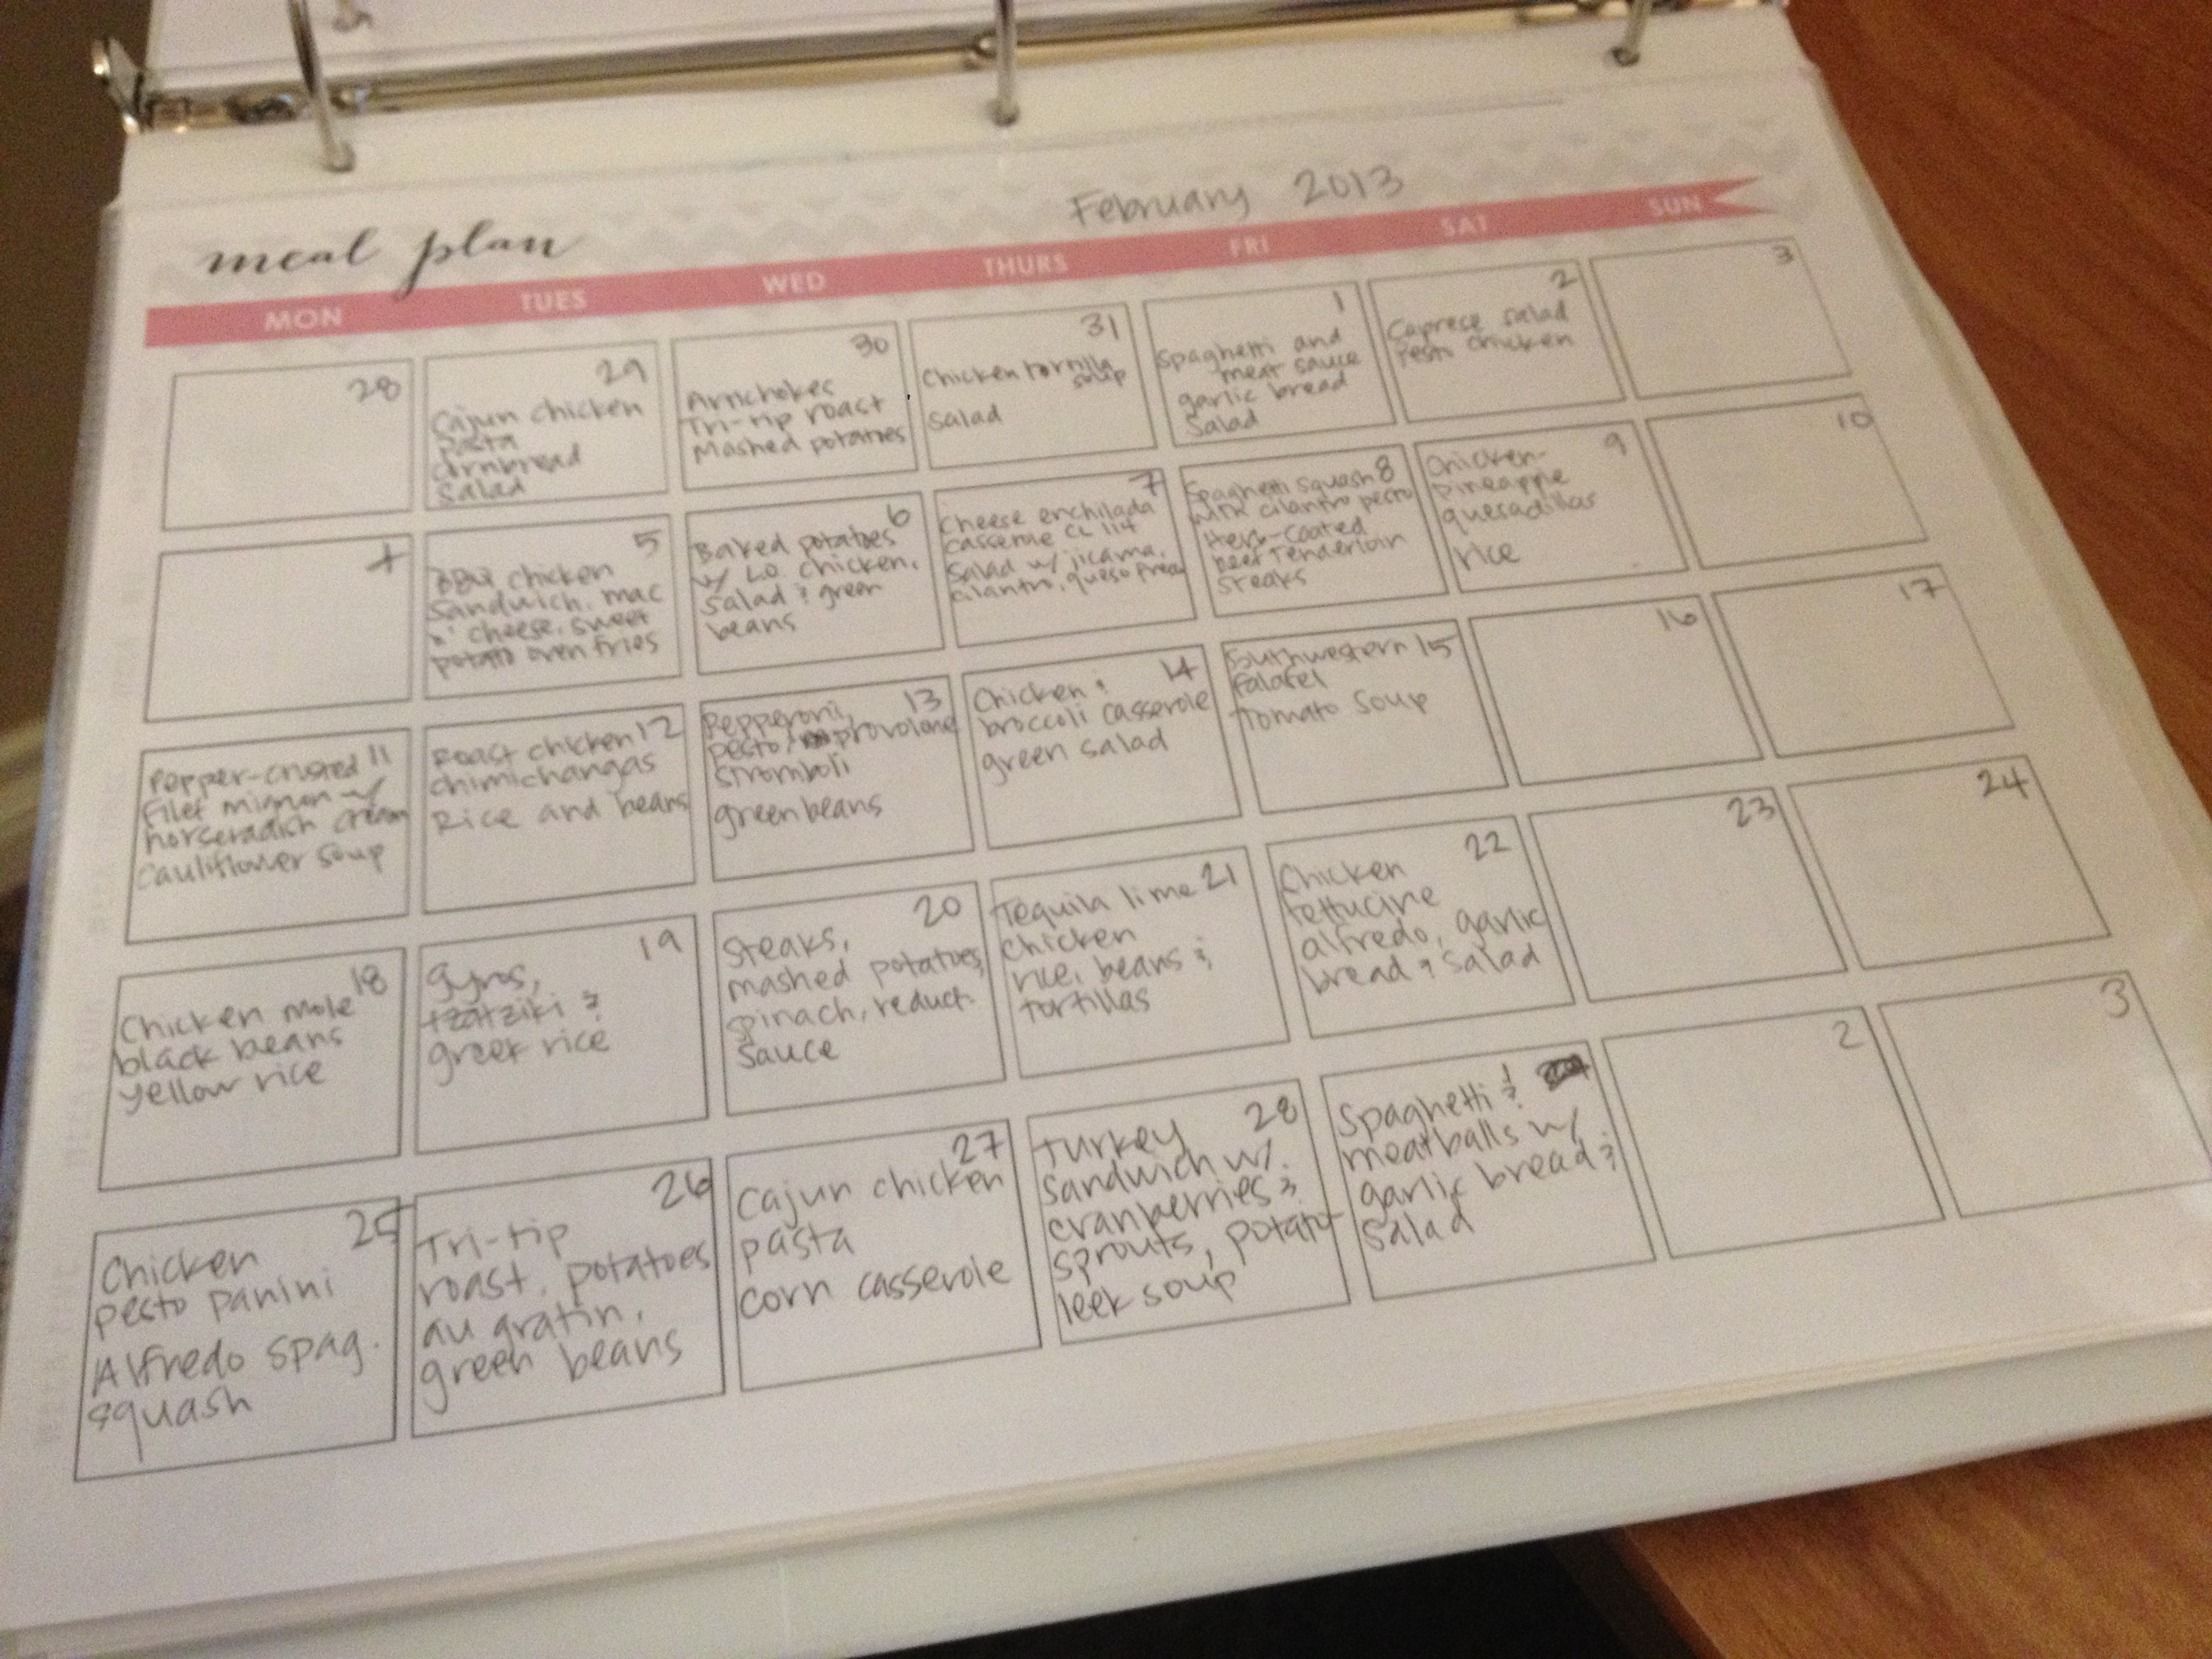 February 2013
meal plan
MON TUES WED THURS FRI SAT SUN
28
29
Cajun chicken
pasta
cornbread
Salad
30
Artichokes
Tri-tip roast
Mashed potatoes
31
Chicken tortilla
soup
Salad
1
Spaghetti and
meat sauce
garlic bread
Salad
2
Caprese salad
Pesto chicken
3
4
5
BBQ chicken
Sandwich, mac
n' cheese, sweet
potato oven fries
6
Baked potatoes
w/ L.O. chicken,
Salad & green
beans
7
Cheese enchilada
casserole CL 114
Salad w/ jicama,
cilantro, queso fresco
8
Spaghetti squash
with cilantro pesto
Herb-coated
beef tenderloin
steaks
9
Chicken-
pineapple
quesadillas
rice
10
11
Pepper-crusted
filet mignon w/
horseradish cream
Cauliflower soup
12
Roast chicken
chimichangas
Rice and beans
13
Pepperoni,
pesto, provolone
stromboli
green beans
14
Chicken &
broccoli casserole
green salad
15
Southwestern
falafel
Tomato soup
16
17
18
Chicken mole
black beans
yellow rice
19
Gyros,
tzatziki &
greek rice
20
Steaks,
mashed potatoes,
spinach, reduct.
sauce
21
Tequila lime
chicken
rice, beans &
tortillas
22
Chicken
fettucine
alfredo, garlic
bread & salad
23
24
25
Chicken
pesto panini
Alfredo spag.
squash
26
Tri-tip
roast, potatoes
au gratin,
green beans
27
Cajun chicken
pasta
corn casserole
28
Turkey
sandwich w/
cranberries &
sprouts, potato
leek soup
1
Spaghetti &
meatballs w/
garlic bread &
salad
2
3